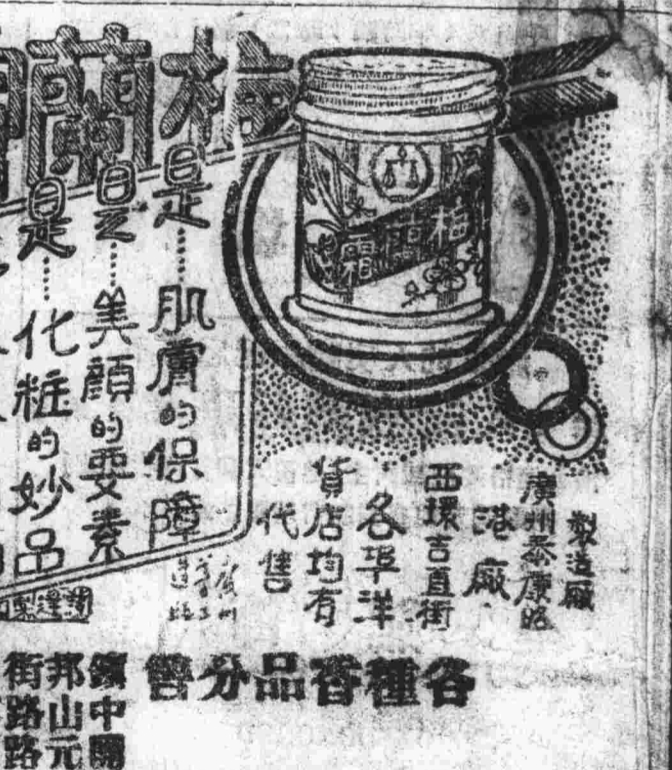 梅蘭
梅蘭霜
是……肌膚的保障
是……美顏的要素
是……化粧的妙品
製造廠
廣州泰康路
港廠
西環吉直街
各埠洋
貨店均有
代售
各種香品分售
中開
邦山元
街路路